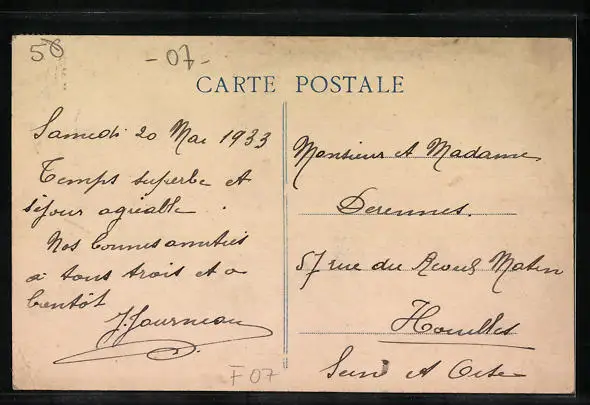 50
-07-
CARTE POSTALE
Samedi 20 Mai 1933
Temps superbe et
séjour agréable.
Nos bonnes amitiés
à tous trois et a
bientôt
J. Journeau
Monsieur et Madame
Derennes.
57 rue du Réveil Matin
Houilles
Seine et Oise
F07